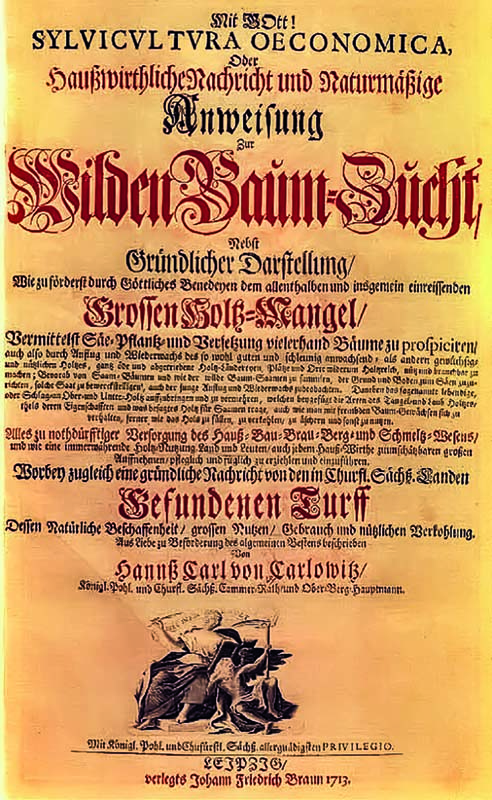 Mit GOtt!
SYLVICVLTVRA OECONOMICA,
Oder
Haußwirthliche Nachricht und Naturmäßige
Anweisung
Zur
Wilden Baum-Zucht,
Nebst
Gründlicher Darstellung/
Wie zu förderst durch Göttliches Benedeyen dem allenthalben und insgemein einreissenden
Grossen Holtz-Mangel/
Vermittelst Säe-Pflantz- und Versetzung vielerhand Bäume zu prospiciren/
auch also durch Anflug und Wiederwachs des so wohl guten und schleunig anwachsend- als andern
und nützlichen Holtzes, gantz öde und abgetriebene Holtz-Ländereyen, Plätze und Orte widerum Holtzreich, nütz und brauchbar zu
machen; Bevorab von Saam-Bäumen und wie der wilde Baum-Saamen zu sammlen, der Grund und Boden zum Säen zuzu-
richten, solche Saat zu bewerckstelligen, auch der junge Anflug und Wiederwachs zu beobachten. Daneben das sogenannte lebendige,
oder Schlag- an Ober- und Unter-Holtz auffzubringen und zu vermehren, welchen beygefügt die Arten des Tangel- und Laub-Holtzes,
theils deren Eigenschafften und was besagtes Holtz für Saamen trage, auch wie man mit frembden Baum-Gewächsen sich zu
verhalten, ferner wie das Holtz zu fällen, zu verkohlen, zu äschern und sonst zu nutzen.
Alles zu nothdürfftiger Versorgung des Hauß- Bau- Brau- Berg- und Schmeltz-Wesens,
und wie eine immerwährende Holtz-Nutzung Land und Leuten, auch jedem Hauß-Wirthe zu unschätzbaren großen
Auffnehmen, pfleglich und füglich zu erziehlen und einzuführen.
Worbey zugleich eine gründliche Nachricht von den in Churfl. Sächß. Landen
Gefundenen Turff
Dessen Natürliche Beschaffenheit/ grossen Nutzen/ Gebrauch und nützlichen Verkohlung.
Aus Liebe zu Beförderung des algemeinen Bestens beschrieben
Von
Hannß Carl von Carlowitz/
Königl. Pohl. und Churfl. Sächß. Cammer-Rath/ und Ober-Berg-Hauptmann.
Mit Königl. Pohl. und Chufürstl. Sächß. allergnädigsten PRIVILEGIO.
LEIPZIG/
verlegts Johann Friedrich Braun 1713.